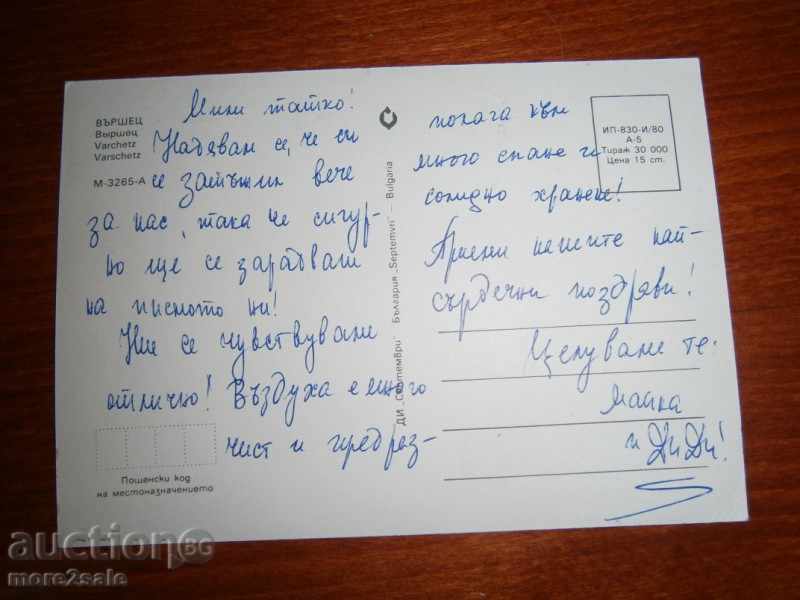 ВЪРШЕЦ
Вършец
Varchetz
Varschetz
М-3265-А
Мили татко!
Надявам се, че си
се затъжил вече
за нас, така че сигур-
но ще се зарадваш
на писмото ни!
Ние се чувствуваме
отлично! Въздуха е много
чист и предраз-
Пощенски код
на местоназначението
ДИ „Септември" България „Septemvri" – Bulgaria
полага към
много спане и
солидно хранене!
Приеми нашите най-
сърдечни поздрави!
Целуваме те:
майка
и ДиДи!
ИП-830-И/80
А-5
Тираж 30 000
Цена 15 ст.
auction BG
more2sale